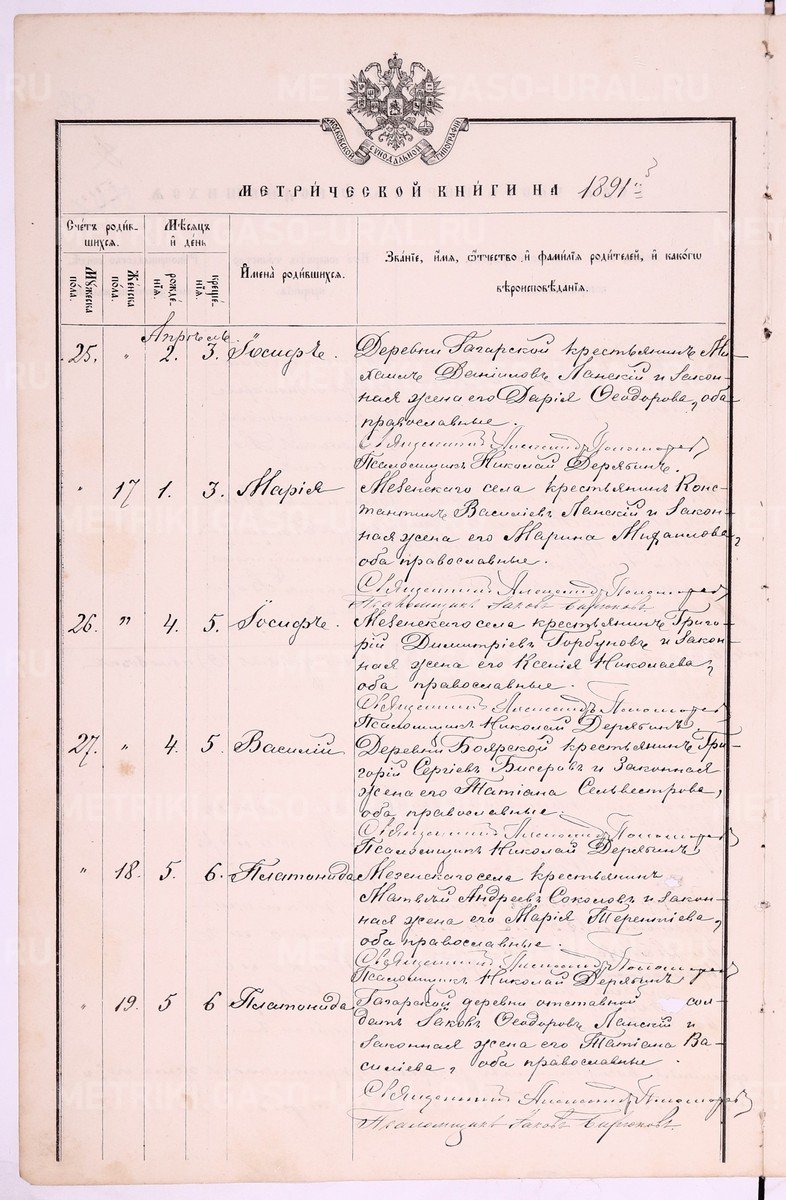 МОСКОВСКОЙ СѴНОДАЛЬНОЙ ТИПОГРАФІИ
МЕТРИ́ЧЕСКОЙ КНИ́ГИ НА 1891 й
Сче́тъ роди́в-
шихся.
Мѣ́сяцъ
и҆ де́нь
Му́жеска по́ла.
Же́нска по́ла.
рожде́нїѧ.
креще́нїѧ.
И҆мена̀ роди́вшихся.
Зва́нїе, и҆́мѧ, ѻ҆́тчество и҆ фами́лїѧ роди́телей, и҆ како́гѡ
вѣроисповѣ́данїѧ.
Апрѣль
25. " 2. 3. Іосифъ. Деревни Гагарской крестьянинъ Ми-
хаилъ Даніиловъ Ланскій и закон-
ная жена его Дарія Ѳеодорова, оба
православные.
Священникъ Александръ Пономаревъ
Псаломщикъ Николай Дерябинъ.
" 17 1. 3. Марія Мезенскаго села крестьянинъ Конс-
тантинъ Василіевъ Ланскій и закон-
ная жена его Марина Михаилова,
оба православные.
Священникъ Александръ Пономаревъ
Псаломщикъ Іаковъ Бирюковъ
26. " 4. 5. Іосифъ. Мезенскаго села крестьянинъ Григо-
рій Димитріевъ Горбуновъ и закон-
ная жена его Ксенія Николаева,
оба православные.
Священникъ Александръ Пономаревъ
Псаломщикъ Николай Дерябинъ
27. " 4. 5 Василій Деревни Боярской крестьянинъ Гри-
горій Сергіевъ Бисеровъ и законная
жена его Татіана Сельвестрова,
оба православные.
Священникъ Александръ Пономаревъ
Псаломщикъ Николай Дерябинъ
" 18. 5. 6. Платонида Мезенскаго села крестьянинъ
Матвѣй Андреевъ Соколовъ и закон-
ная жена его Марія Терентіева,
оба православные.
Священникъ Александръ Пономаревъ
Псаломщикъ Николай Дерябинъ
" 19. 5 6 Платонида Гагарской деревни отставной сол-
датъ Іаковъ Ѳеодоровъ Ланскій и
законная жена его Татіана Ва-
силіева, оба православные.
Священникъ Александръ Пономаревъ
Псаломщикъ Іаковъ Бирюковъ.